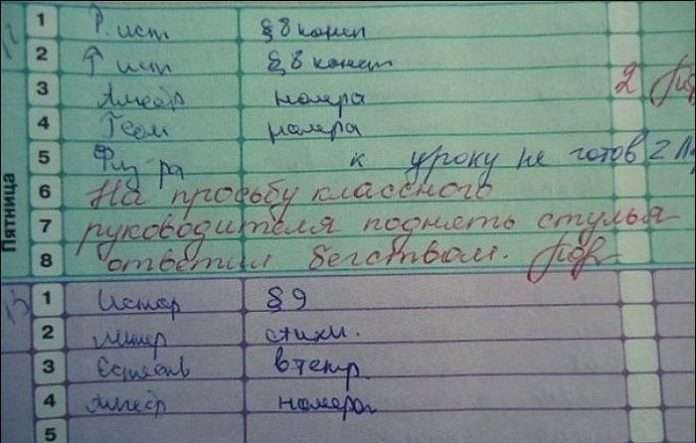 1 Р. ист § 8 консп
2 Р ист § 8 консп
3 Алгебр номера 2
4 Геом номера
5 Физ ра к уроку не готов 2
Пятница
6 На просьбу классного
7 руководителя поднять стулья
8 ответил бегством.
13
1 Истор § 9
2 Литер стихи.
3 Естеств в тетр
4 Алгебр номера
5